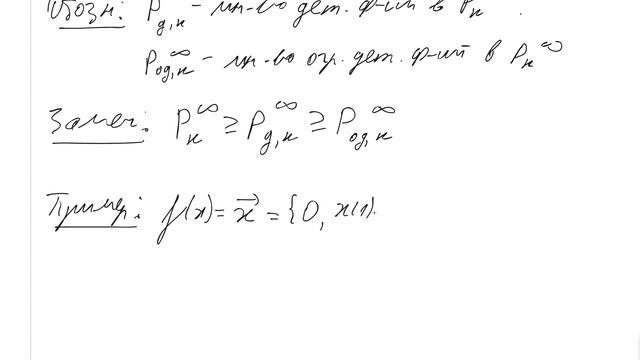 Обозн: P_{д,к} - мн-во дет. ф-ий в P_к.
P_{од,к}^∞ - мн-во огр. дет. ф-ий в P_к^∞
Замеч: P_к^∞ ≥ P_{д,к}^∞ ≥ P_{од,к}^∞
Пример: f(x) = \vec{x} = {0, x(1)